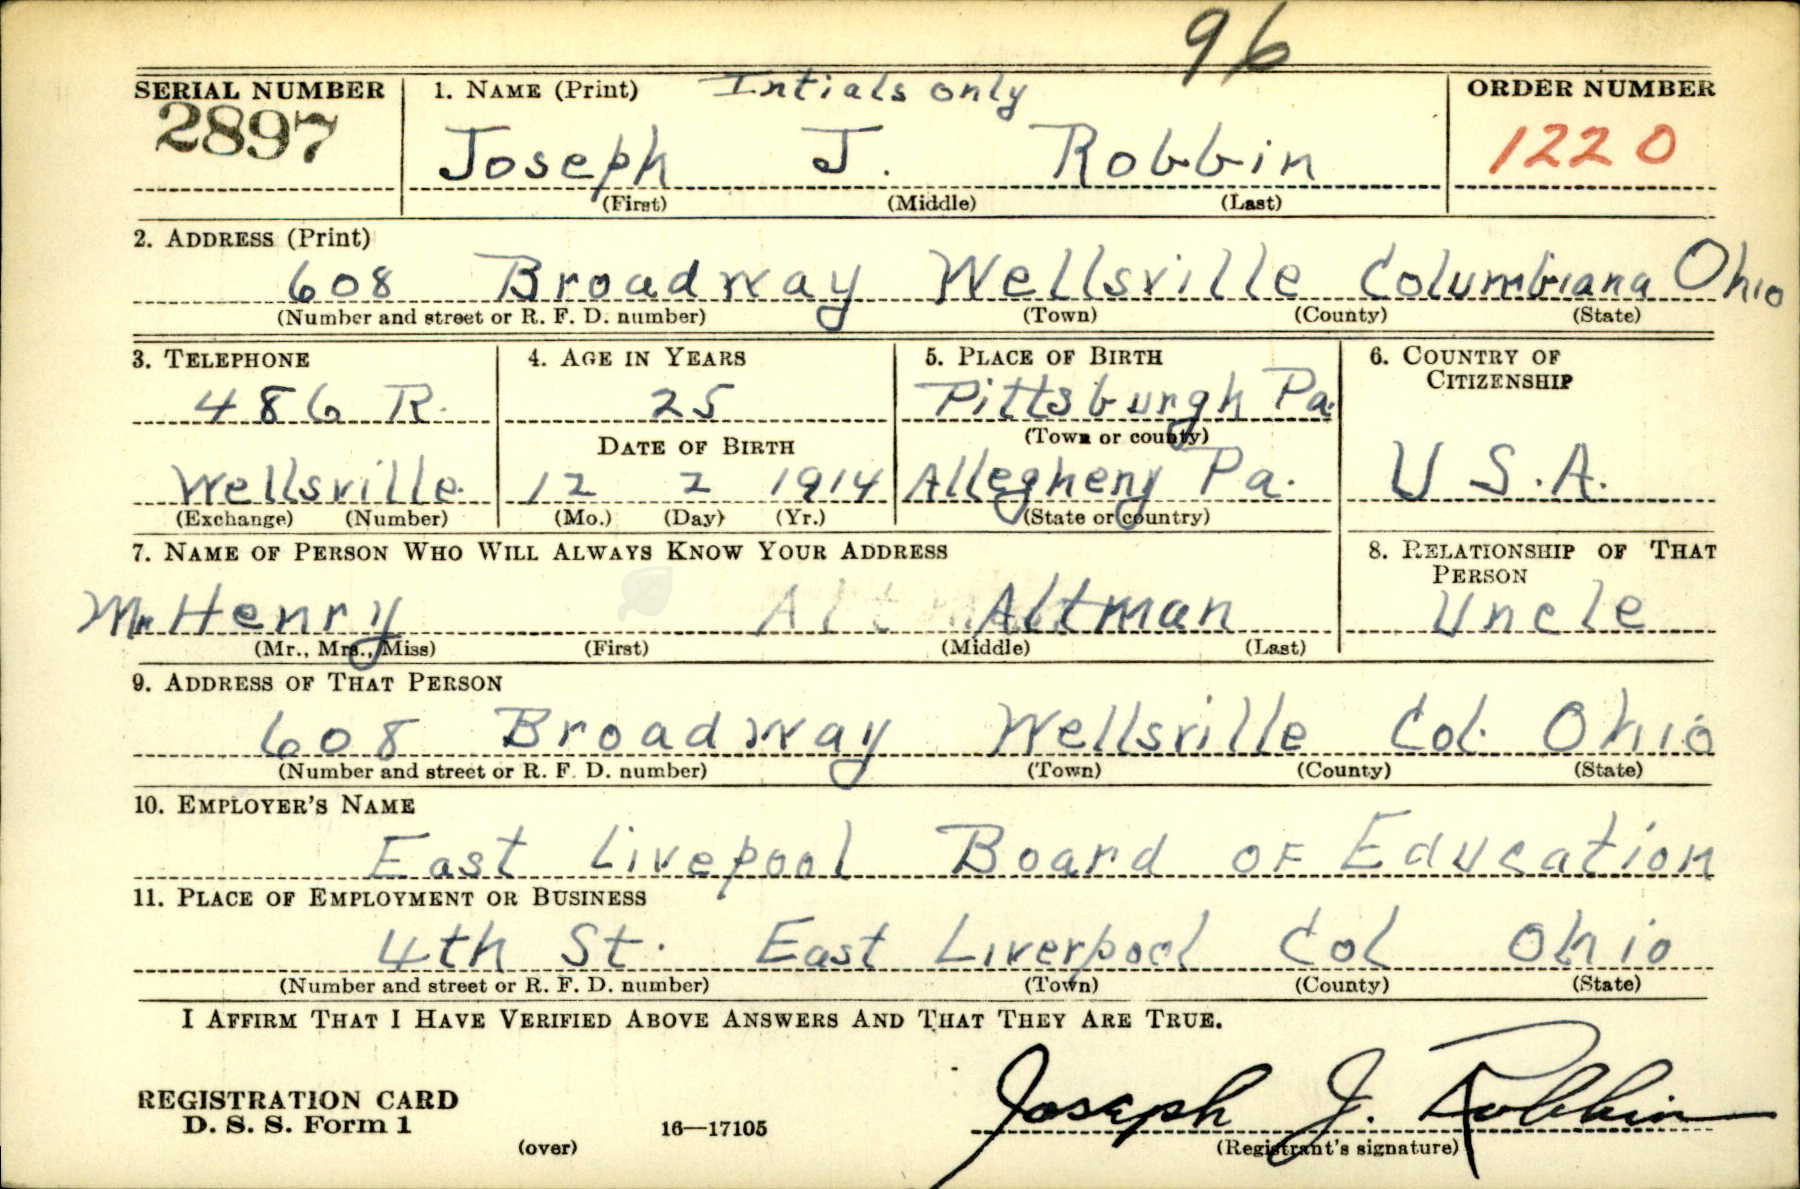 96
SERIAL NUMBER
2897
1. NAME (Print) Intials only
Joseph J. Robbin
(First) (Middle) (Last)
ORDER NUMBER
1220
2. ADDRESS (Print)
608 Broadway Wellsville Columbiana Ohio
(Number and street or R. F. D. number) (Town) (County) (State)
3. TELEPHONE
486 R.
Wellsville
(Exchange) (Number)
4. AGE IN YEARS
25
DATE OF BIRTH
12 2 1914
(Mo.) (Day) (Yr.)
5. PLACE OF BIRTH
Pittsburgh Pa.
(Town or county)
Allegheny Pa.
(State or country)
6. COUNTRY OF
CITIZENSHIP
U S.A.
7. NAME OF PERSON WHO WILL ALWAYS KNOW YOUR ADDRESS
Mr Henry Altman
(Mr., Mrs., Miss) (First) (Middle) (Last)
8. RELATIONSHIP OF THAT
PERSON
Uncle
9. ADDRESS OF THAT PERSON
608 Broadway Wellsville Col. Ohio
(Number and street or R. F. D. number) (Town) (County) (State)
10. EMPLOYER'S NAME
East Livepool Board OF Education
11. PLACE OF EMPLOYMENT OR BUSINESS
4th St. East Liverpool Col Ohio
(Number and street or R. F. D. number) (Town) (County) (State)
I AFFIRM THAT I HAVE VERIFIED ABOVE ANSWERS AND THAT THEY ARE TRUE.
REGISTRATION CARD
D. S. S. Form 1
(over)
16—17105
Joseph J. Robbin
(Registrant's signature)